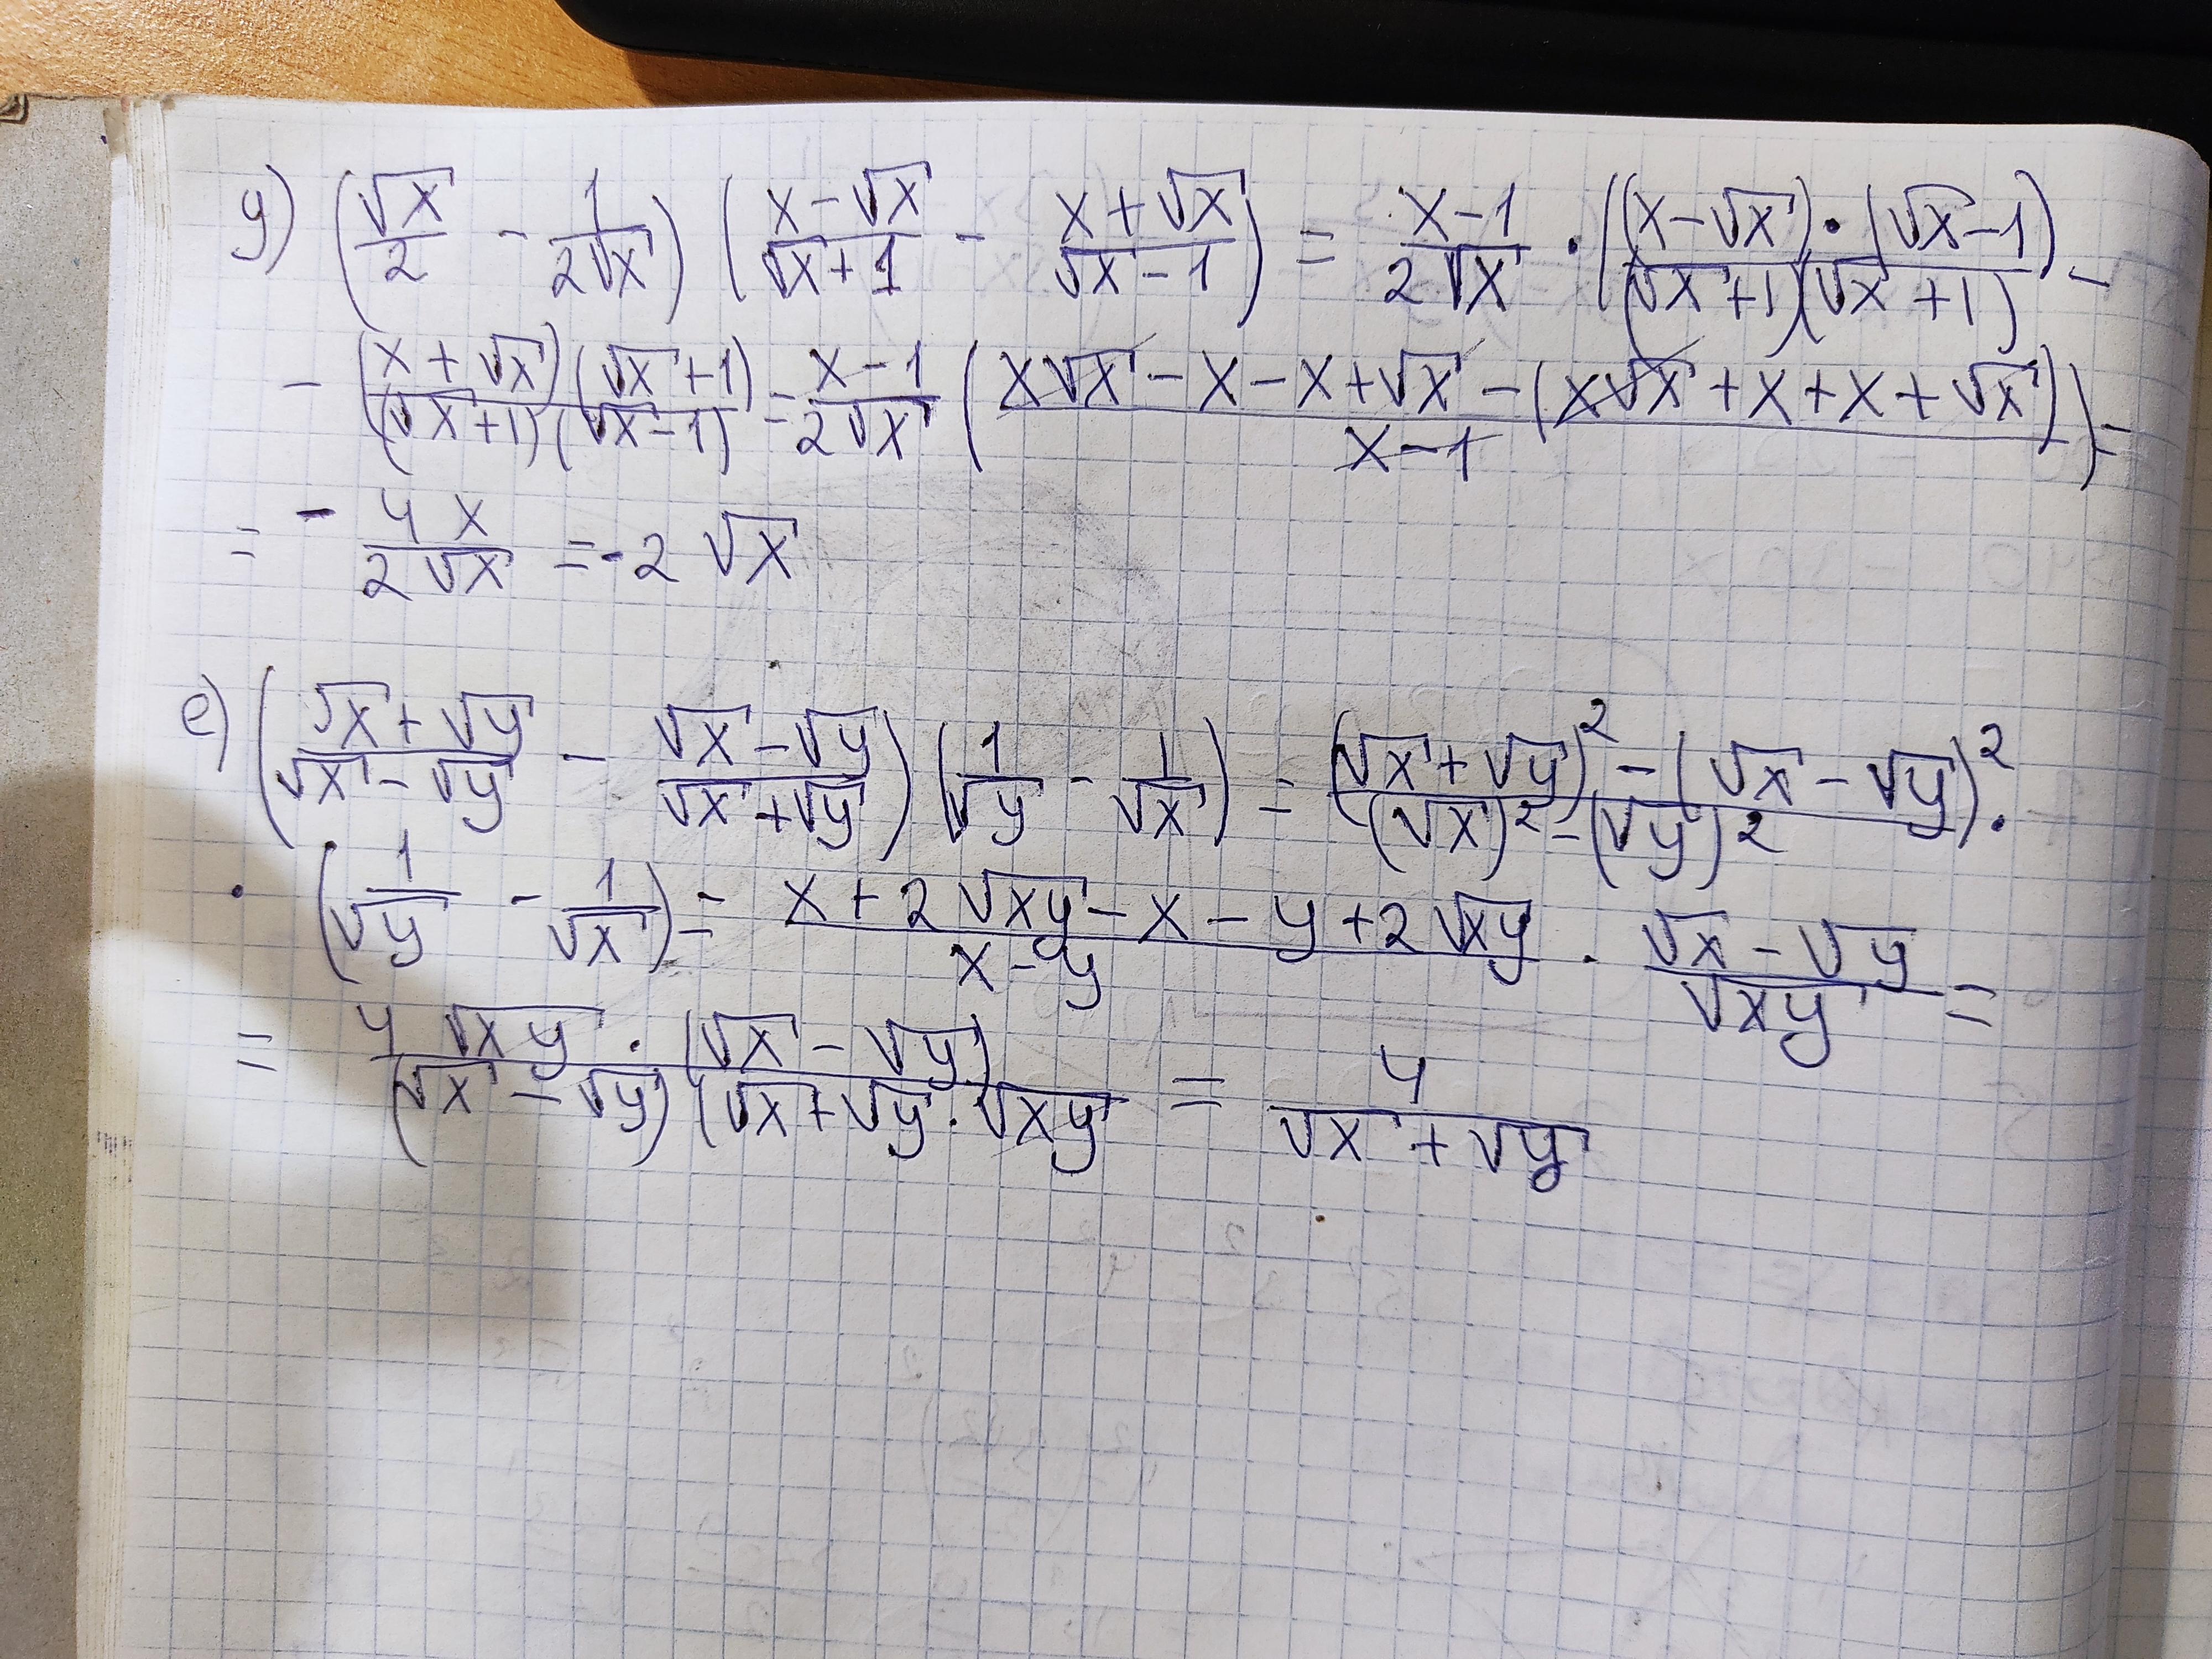 g) (√x/2 - 1/(2√x)) ((x-√x)/(√x+1) - (x+√x)/(√x-1)) = (x-1)/(2√x) · ((x-√x)·(√x-1)/((√x+1)(√x+1)) -
- (x+√x)(√x+1)/((√x+1)(√x-1)) = (x-1)/(2√x) ((x√x-x-x+√x-(x√x+x+x+√x))/(x-1)) =
= - 4x/(2√x) = -2√x
e) ((√x+√y)/(√x-√y) - (√x-√y)/(√x+√y)) (1/√y - 1/√x) = ((√x+√y)²-(√x-√y)²)/((√x)²-(√y)²) ·
· (1/√y - 1/√x) = (x+2√xy-x-y+2√xy)/(x-y) · (√x-√y)/√xy =
= (4√xy·(√x-√y))/((√x-√y)(√x+√y·√xy) = 4/(√x+√y)